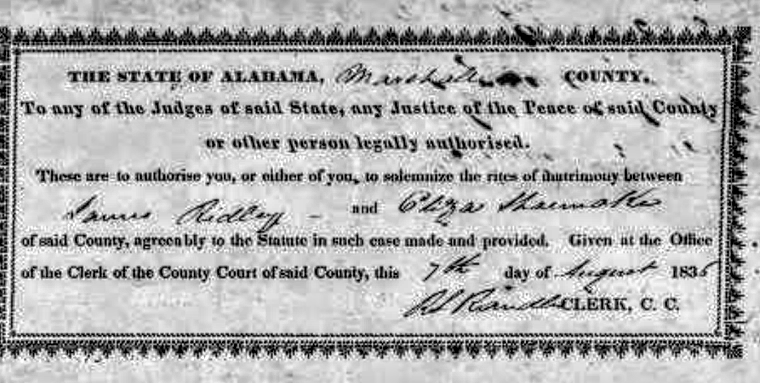 THE STATE OF ALABAMA, Marshall COUNTY.
To any of the Judges of said State, any Justice of the Peace of said County
or other person legally authorised.
These are to authorise you, or either of you, to solemnize the rites of matrimony between
James Ridley and Eliza Shoemaker
of said County, agreeably to the Statute in such case made and provided. Given at the Office
of the Clerk of the County Court of said County, this 7th day of August 1836
CLERK, C. C.